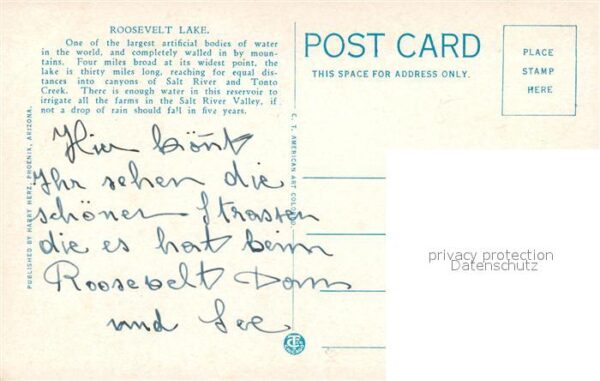 ROOSEVELT LAKE.
One of the largest artificial bodies of water
in the world, and completely walled in by moun-
tains. Four miles broad at its widest point, the
lake is thirty miles long, reaching for equal dis-
tances into canyons of Salt River and Tonto
Creek. There is enough water in this reservoir to
irrigate all the farms in the Salt River Valley, if
not a drop of rain should fall in five years.
Hier könnt
Ihr sehen die
schönen Strassen
die es hat beim
Roosevelt Dam
und See
PUBLISHED BY HARRY HERZ, PHOENIX, ARIZONA.
C. T. AMERICAN ART COLORED
POST CARD
THIS SPACE FOR ADDRESS ONLY.
PLACE
STAMP
HERE
privacy protection
Datenschutz